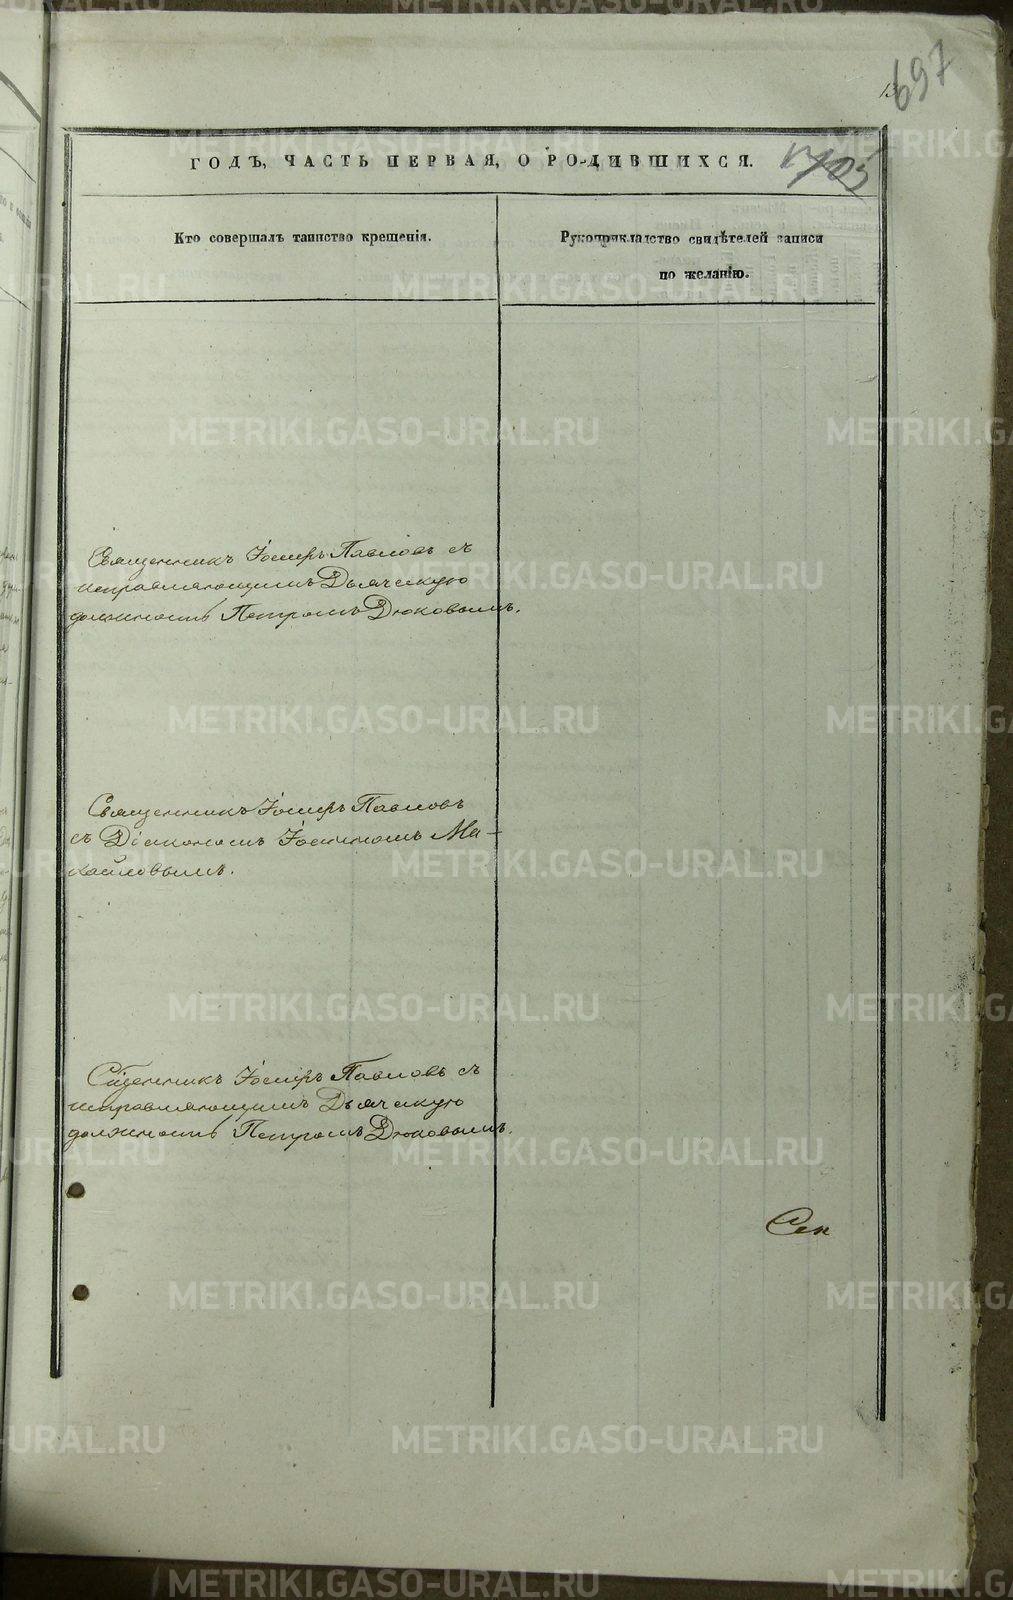 697
13
ГОДЪ, ЧАСТЬ ПЕРВАЯ, О РОДИВШИХСЯ.
Кто совершалъ таинство крещенія.
Рукоприкладство свидѣтелей записи
по желанію.
Священникъ Іосифъ Павловъ съ
исправляющимъ Дьяческую
должность Петромъ Дюковымъ.
Священникъ Іосифъ Павловъ
съ Діакономъ Іоанномъ Ма-
кайловымъ.
Сщенникъ Іосифъ Павловъ съ
исправляющимъ Дьяческую
должность Петромъ Дюковымъ.
Сен
METRIKI.GASO-URAL.RU